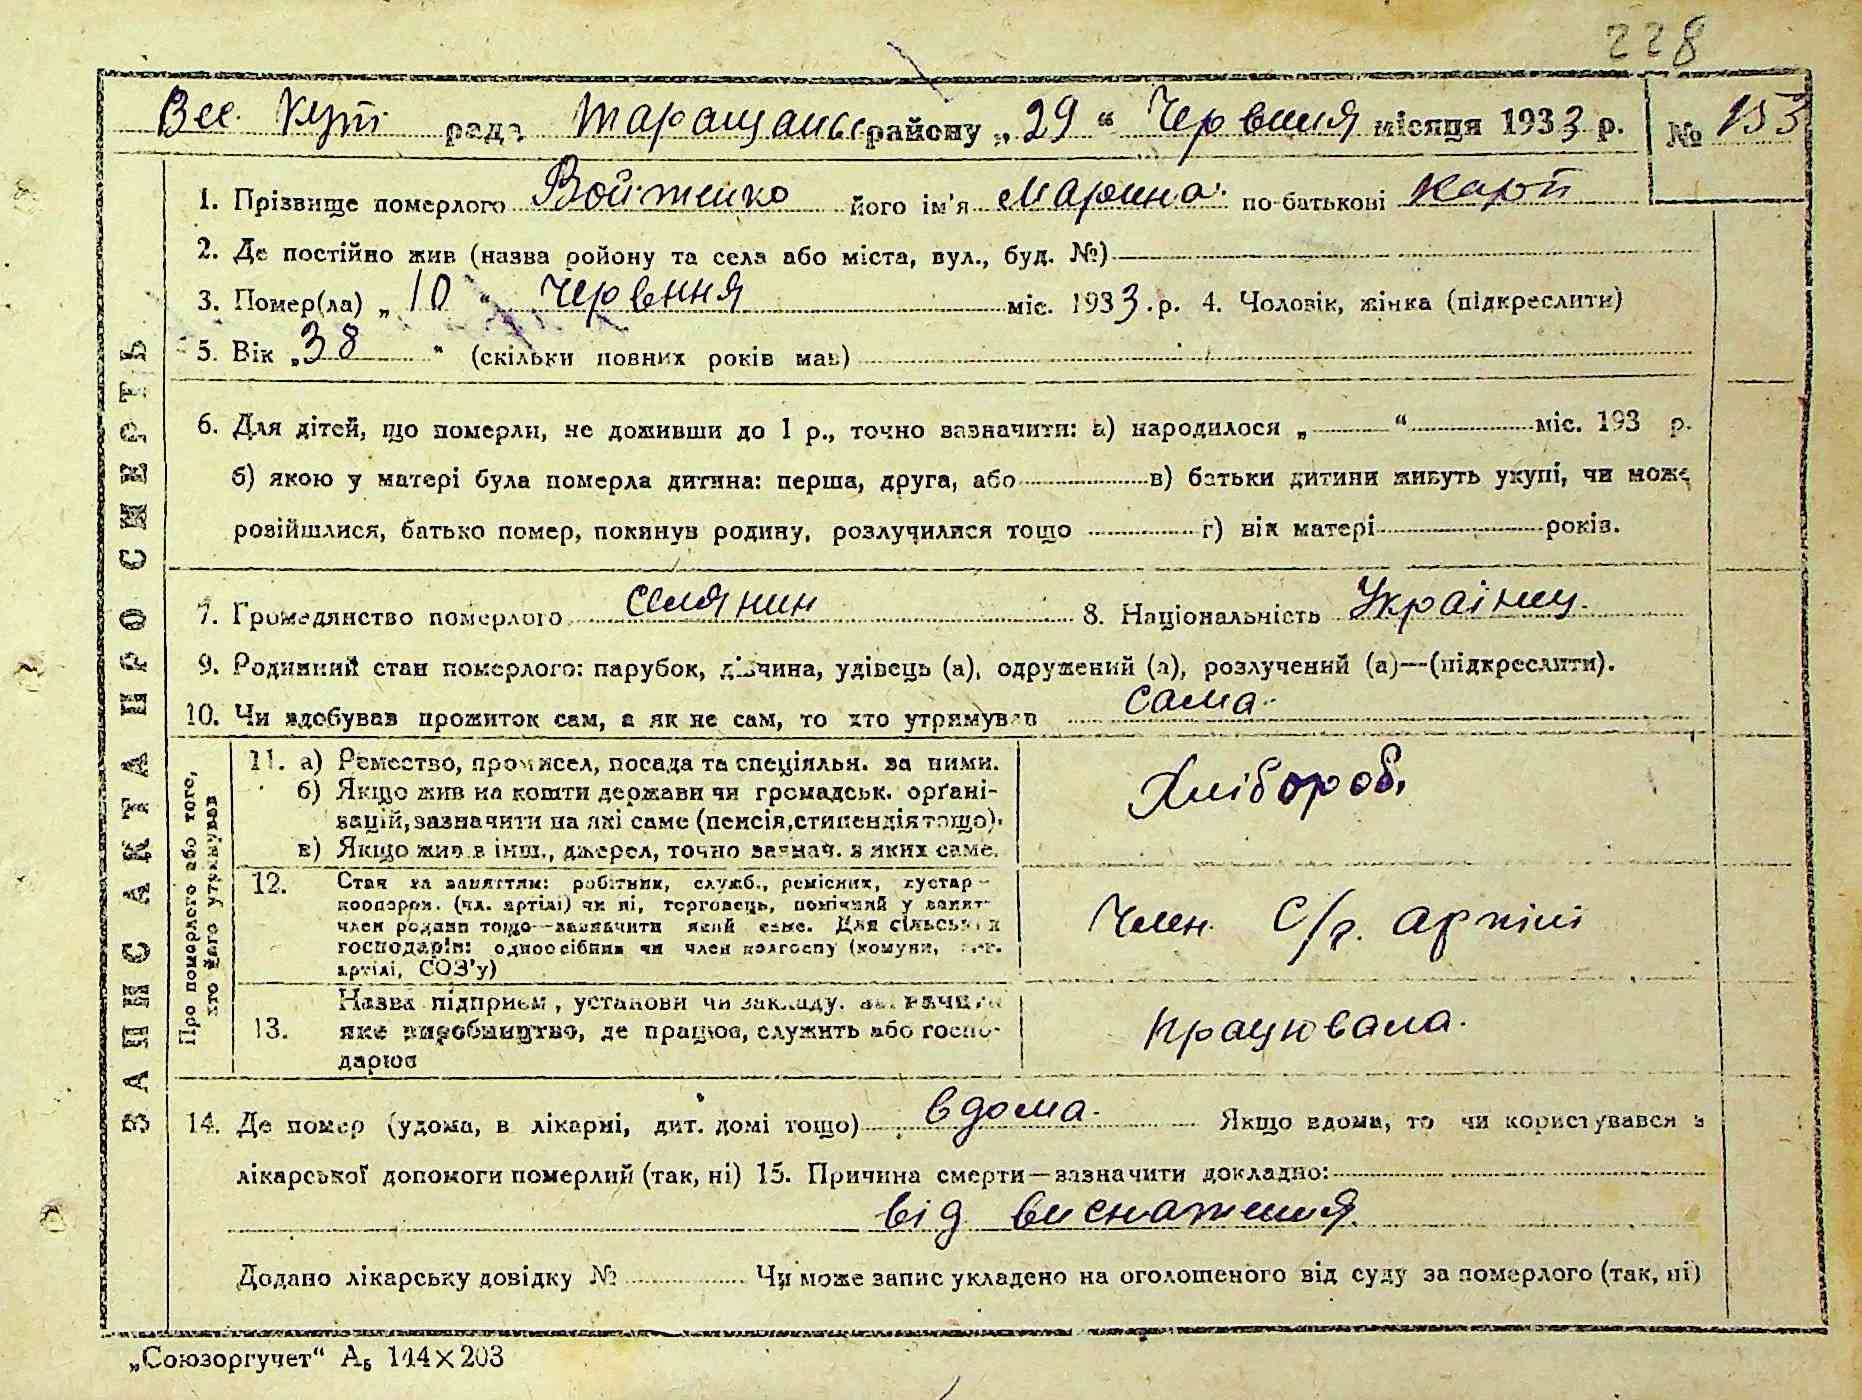 228
Вес. Кут рада Таращансь району „29“ Червния місяця 1933 р. № 153
1. Прізвище померлого Войтенко його ім'я Марина по-батькові Карп
2. Де постійно жив (назва ройону та села або міста, вул., буд. №)
3. Помер(ла) „10“ Червння міс. 1933.р. 4. Чоловік, жінка (підкреслити)
5. Вік „38“ (скільки повних років мав)
6. Для дітей, що померли, не доживши до 1 р., точно зазначити: а) народилося „ “ міс. 193 р.
б) якою у матері була померла дитина: перша, друга, або в) батьки дитини живуть укупі, чи може
розійшлися, батько помер, покинув родину, розлучилися тощо г) вік матері років.
7. Громадянство померлого селянин 8. Національність Українец.
9. Родинний стан померлого: парубок, дівчина, удівець (а), одружений (а), розлучений (а)—(підкреслити).
10. Чи здобував прожиток сам, а як не сам, то хто утримував сама.
ЗАПИС АКТА ПРО СМЕРТЬ
Про померлого або того,
хто його утримував
11. а) Ремество, промисел, посада та спеціяльн. за ними.
б) Якщо жив на кошти держави чи громадськ. орґані-
зацій, зазначити на які саме (пенсія, стипендія тощо).
в) Якщо жив з інш., джерел, точно зазнач. з яких саме.
Хлібороб.
12. Стан за заняттям: робітник, служб., ремісник, кустар-
кооперов. (чл. артілі) чи ні, торговець, помічний у занят-
член родини тощо—зазначити який саме. Для сільських
господарів: одноосібник чи член колгоспу (комуни,
артілі, СОЗ'у)
Член. С/г. артілі
13. Назва підприєм, установи чи закладу. зазначити
яке виробництво, де працює, служить або госпо-
дарює
працювала.
14. Де помер (удома, в лікарні, дит. домі тощо) вдома. Якщо вдома, то чи користувався з
лікарської допомоги померлий (так, ні) 15. Причина смерти—зазначити докладно:
від виснаження
Додано лікарську довідку № Чи може запис укладено на оголошеного від суду за померлого (так, ні)
„Союзоргучет“ А₅ 144×203